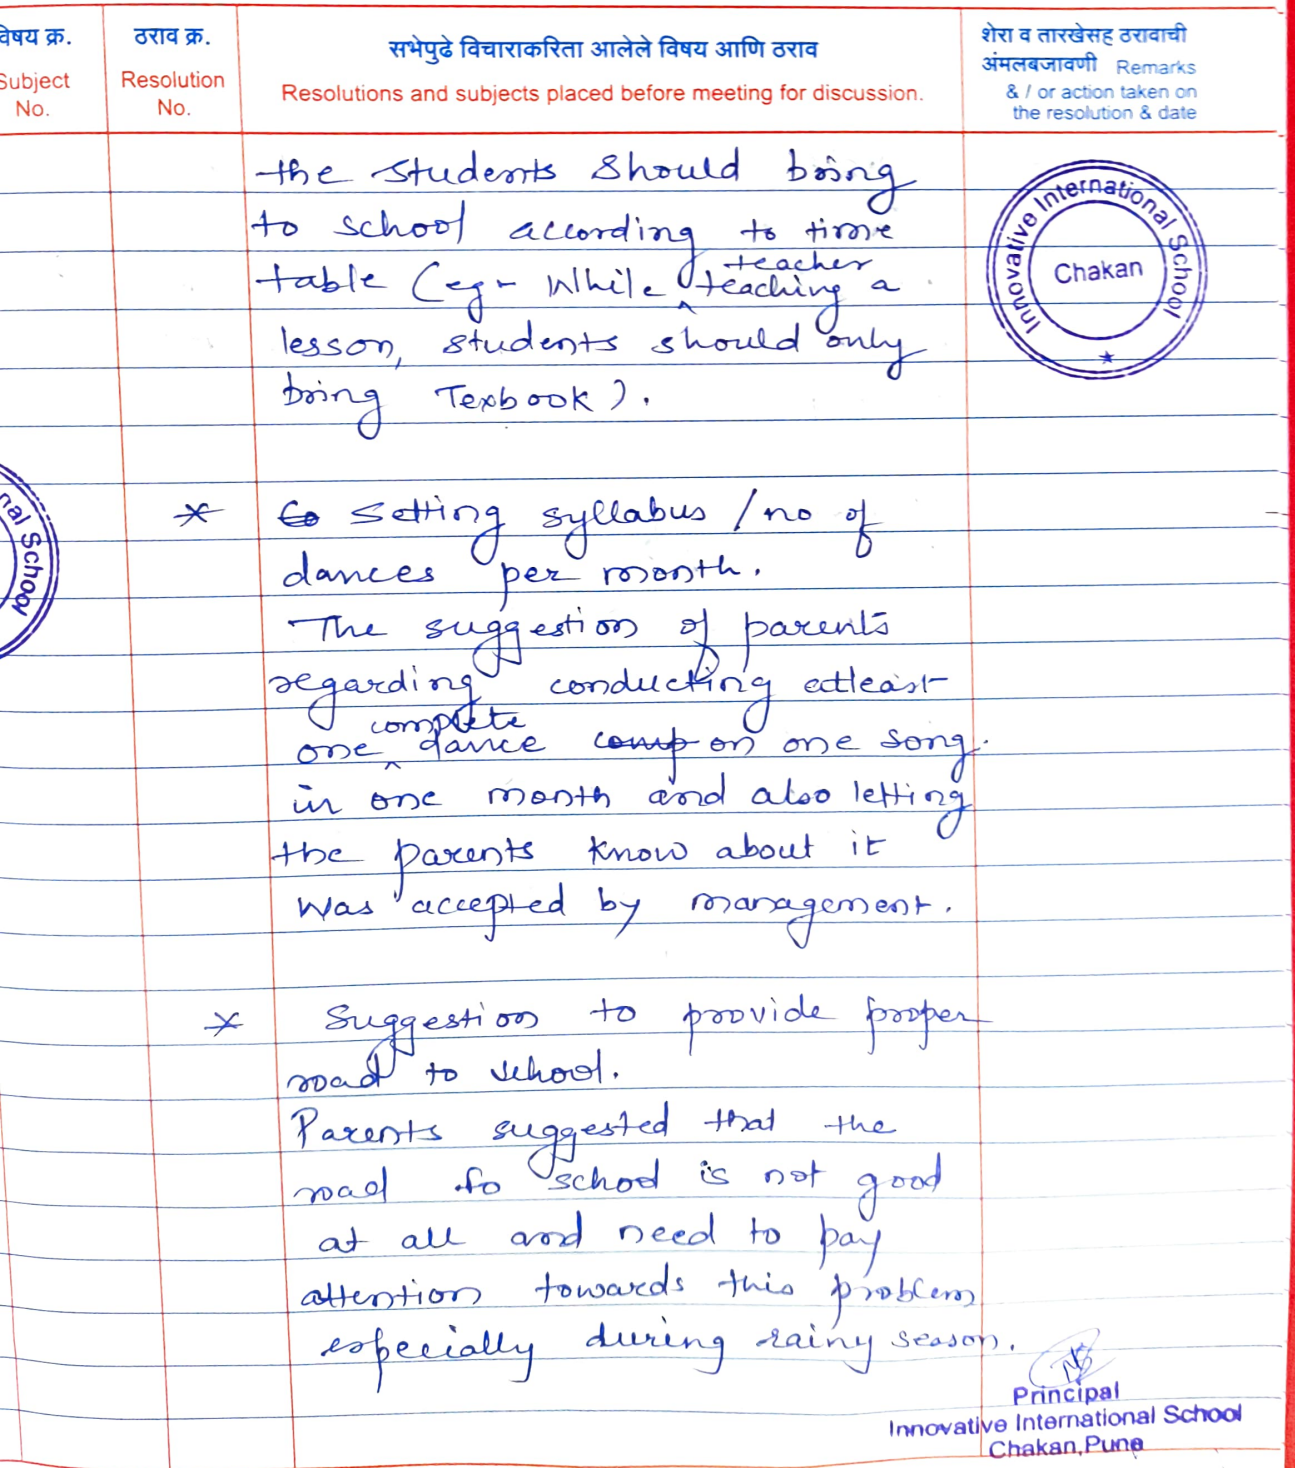 विषय क्र.
Subject
No.
ठराव क्र.
Resolution
No.
सभेपुढे विचाराकरिता आलेले विषय आणि ठराव
Resolutions and subjects placed before meeting for discussion.
शेरा व तारखेसह ठरावाची
अंमलबजावणी Remarks
& / or action taken on
the resolution & date
the students should bring
to school according to time
table (eg- While teacher teaching a
lesson, students should only
bring Texbook).
Innovative International School
Chakan
nal School
* to setting syllabus / no of
dances per month.
The suggestion of parents
regarding conducting atleast
one complete dance comp on one song.
in one month and also letting
the parents know about it
was accepted by management.
* Suggestion to provide proper
road to school.
Parents suggested that the
road to school is not good
at all and need to pay
attention towards this problem
especially during rainy season.
Principal
Innovative International School
Chakan, Pune